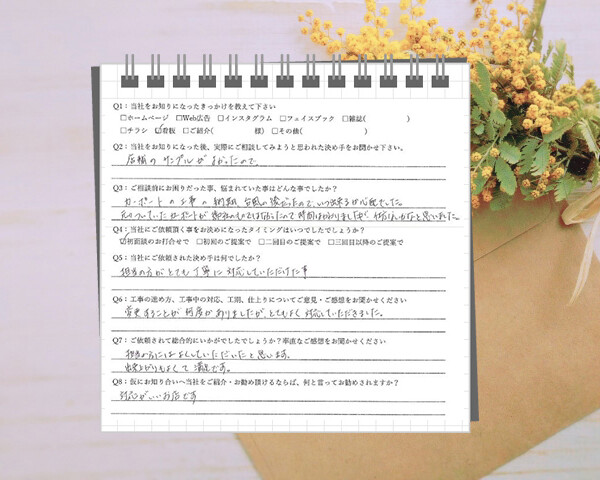 Q1：当社をお知りになったきっかけを教えて下さい
□ホームページ □Web広告 □インスタグラム □フェイスブック □雑誌( )
□チラシ ☑看板 □ご紹介( 様) □その他( )
Q2：当社をお知りになった後、実際にご相談してみようと思われた決め手をお聞かせ下さい。
店頭のサンプルがよかったので。
Q3：ご相談前にお困りだった事、悩まれていた事はどんな事でしたか？
カーポートの工事の時期、台風の後だったので、いつ出来るか心配でした。
元々ついていたカーポートが
Q4：当社にご依頼頂く事をお決めになったタイミングはいつでしたでしょうか？
☑初面談のお打合せで □初回のご提案で □二回目のご提案で □三回目以降のご提案で
Q5：当社にご依頼された決め手は何でしたか？
担当の方がとても丁寧に対応していただけた事
Q6：工事の進め方、工事中の対応、工期、仕上りについてご意見・ご感想をお聞かせください
変更することが何度かありましたが、とてもよく対応していただきました。
Q7：ご依頼されて総合的にいかがでしたでしょうか？率直なご感想をお聞かせください
担当の方にはよくしていただいたと思います。
出来上がりもよくて満足です。
Q8：仮にお知り合いへ当社をご紹介・お勧め頂けるならば、何と言ってお勧めされますか？
対応がいいお店です